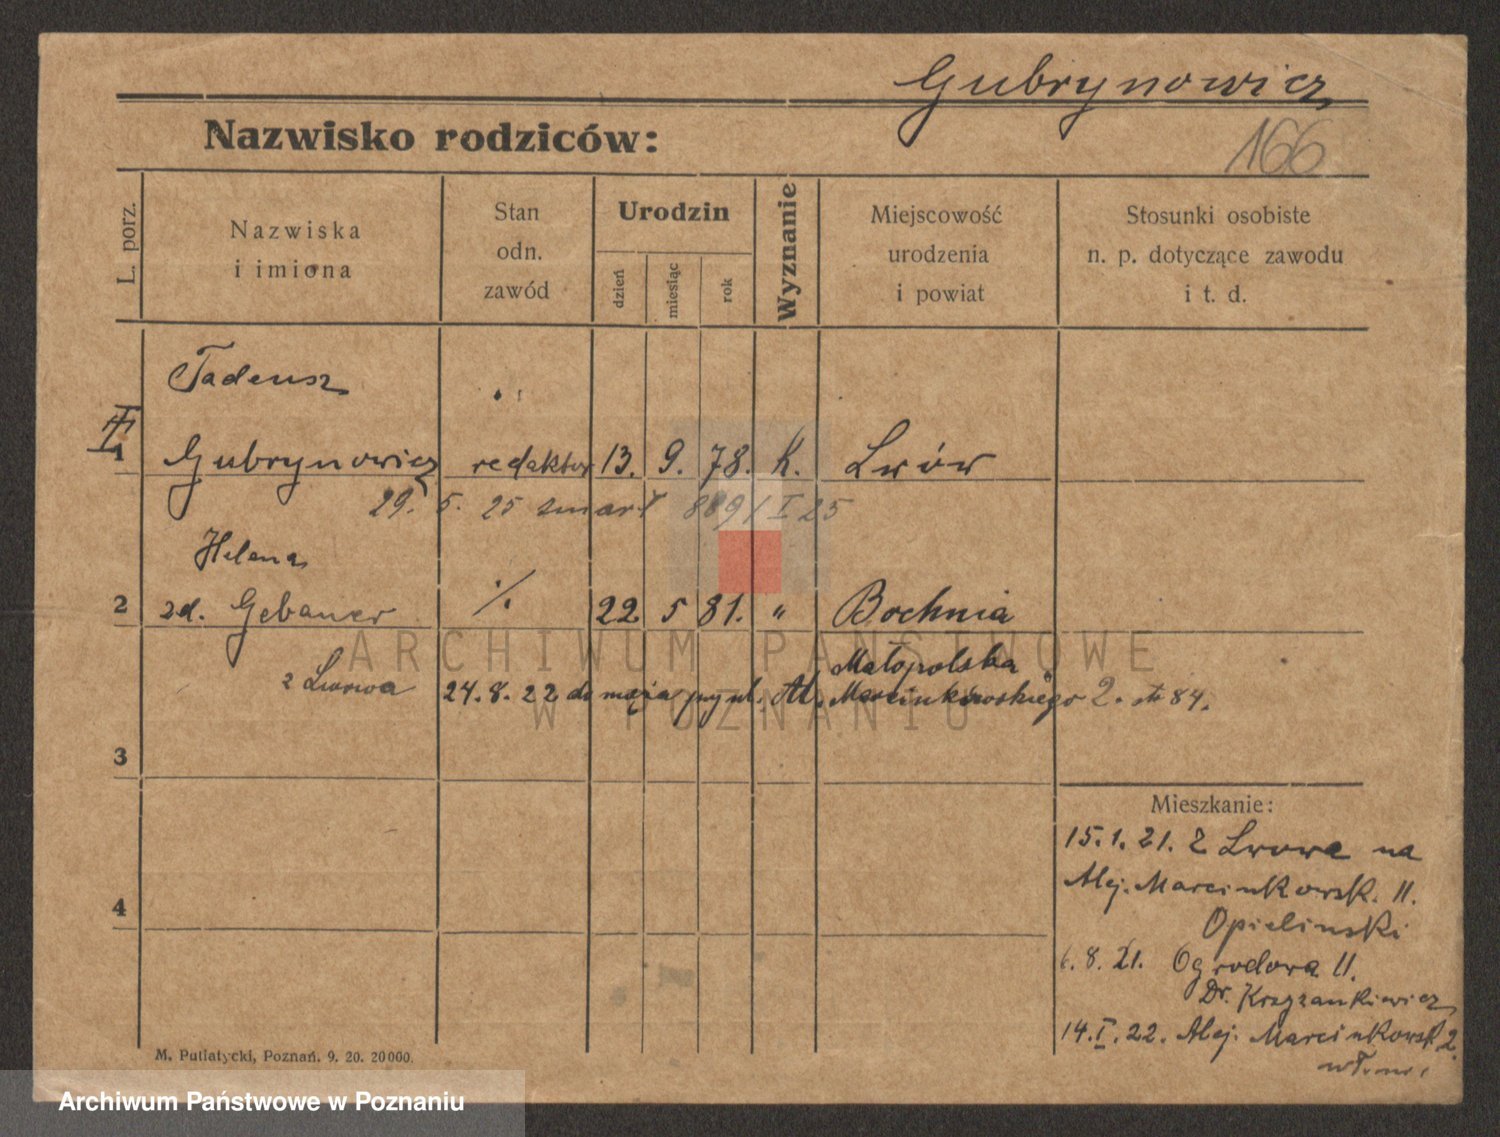 Gubrynowicz
Nazwisko rodziców:
166
L. porz.
Nazwiska
i imiona
Stan
odn.
zawód
Urodzin
dzień
miesiąc
rok
Wyznanie
Miejscowość
urodzenia
i powiat
Stosunki osobiste
n. p. dotyczące zawodu
i t. d.
Tadeusz
1 Gubrynowicz redaktor 13. 9. 78. K. Lwów
29. 5. 25 zmarł 889/I 25
Helena
2 zd. Gebauer ./. 22 5 81. " Bochnia
Małopolska
z Lwowa 24.8.22 do męża przy ul. Al. Marcinkowskiego 2.
84.
3
4
Mieszkanie:
15.1.21. z Lwowa na
Alej. Marcinkowsk. 11.
Opielinski
6.8.21. Ogrodowa 11.
Dr. Krzyżankiewicz
14.I.22. Alej. Marcinkowsk. 2.
M. Putiatycki, Poznań. 9. 20. 20000.
ARCHIWUM PAŃSTWOWE
W POZNANIU
Archiwum Państwowe w Poznaniu